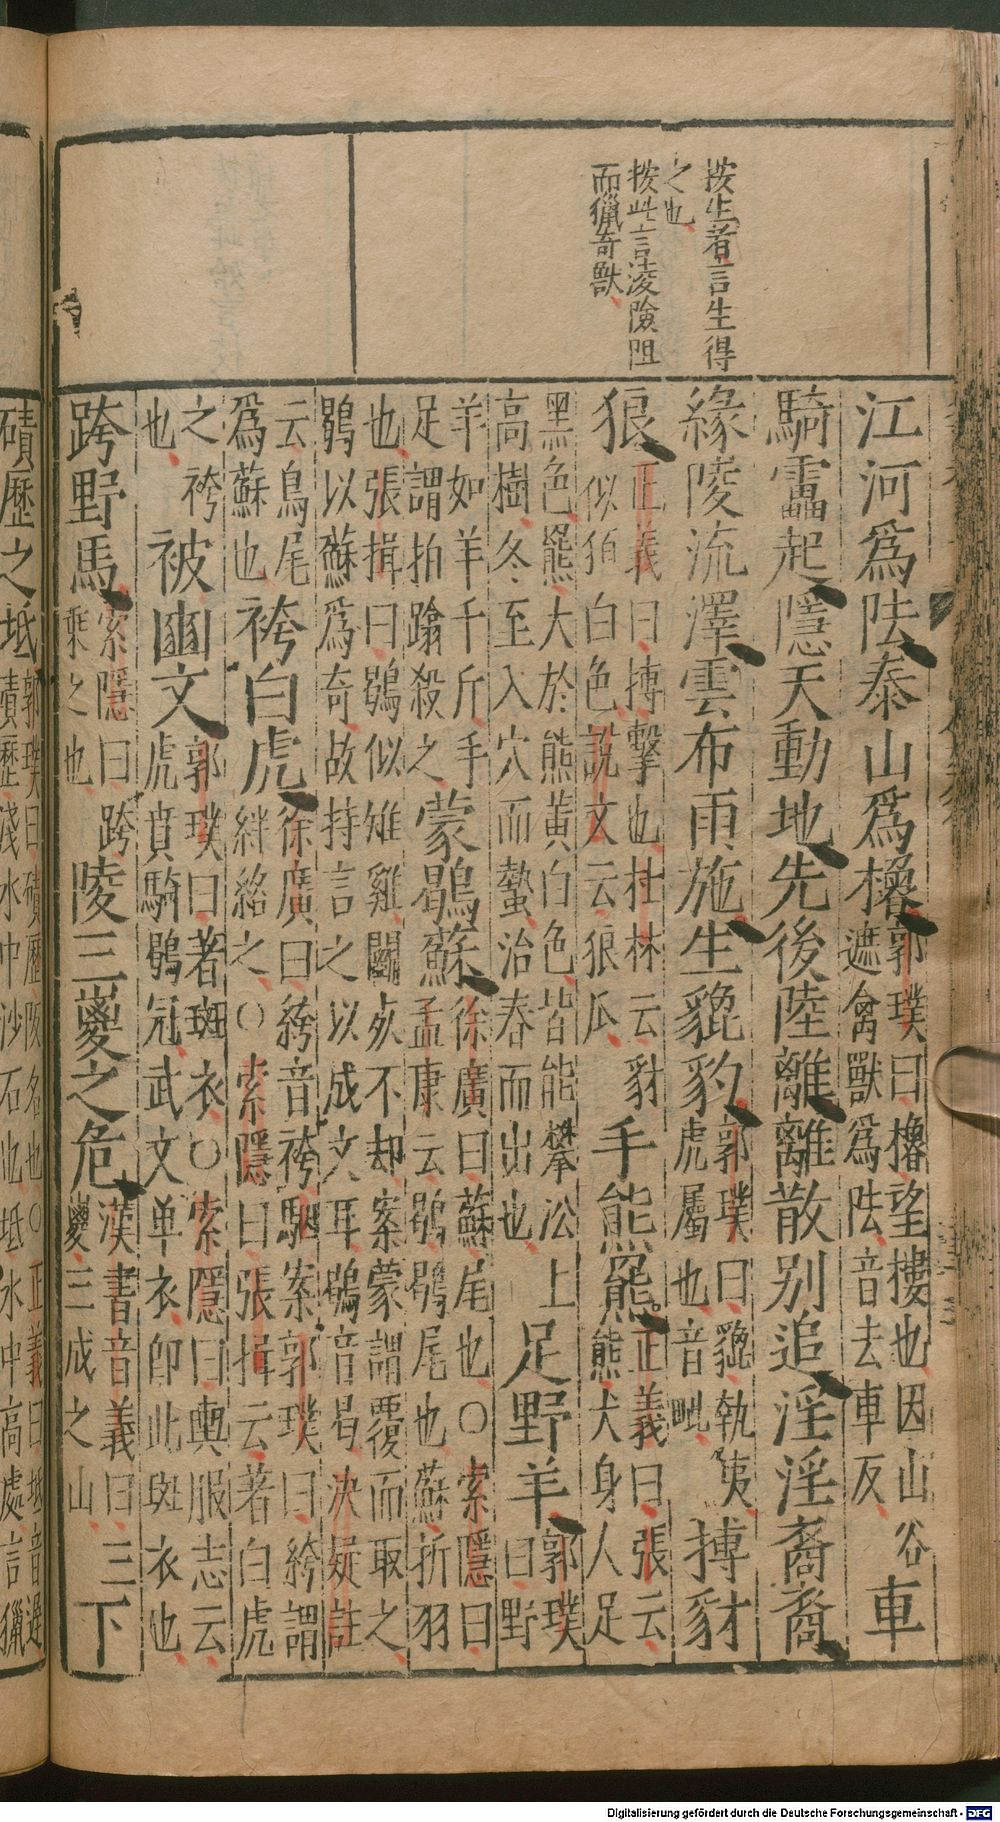 按生者言生得
之也
按此言淩險阻
而獵奇獸
江河爲阹泰山爲櫓郭璞曰櫓望樓也因山谷遮禽獸爲阹音去車反車
騎靁起隱天動地先後陸離離散别追淫淫裔裔
緣陵流澤雲布雨施生貔豹郭璞曰貔執夷虎屬也音毗搏豺
狼正義曰搏擊也杜林云豺似狛白色說文云狼爪手熊羆正義曰張云熊犬身人足
黑色羆大於熊黄白色皆能攀㳂上高樹冬至入穴而蟄治春而出也足野羊郭璞曰野
羊如羊千斤手足謂拍蹹殺之蒙鶡蘇徐廣曰蘇尾也〇索隱曰孟康云鶡鶡尾也蘇折羽
也張揖曰鶡似雉雞鬭死不却案蒙謂覆而取之鶡以蘇爲奇故持言之以成文耳鶡音曷決疑註
云鳥尾爲蘇也袴白虎徐廣曰絝音袴駰案郭璞曰絝謂絆絡之〇索隱曰張揖云著白虎
之袴也被豳文郭璞曰著斑衣〇索隱曰輿服志云虎賁騎鶡冠武文单衣即此斑衣也
跨野馬索隱曰跨乘之也陵三嵏之危漢書音義曰三嵏三成之山下
磧歷之坻郭璞曰磧歷阪名也〇正義曰坻音遲磧歷淺水中沙石也坻水中高處言獵
Digitalisierung gefördert durch die Deutsche Forschungsgemeinschaft - DFG